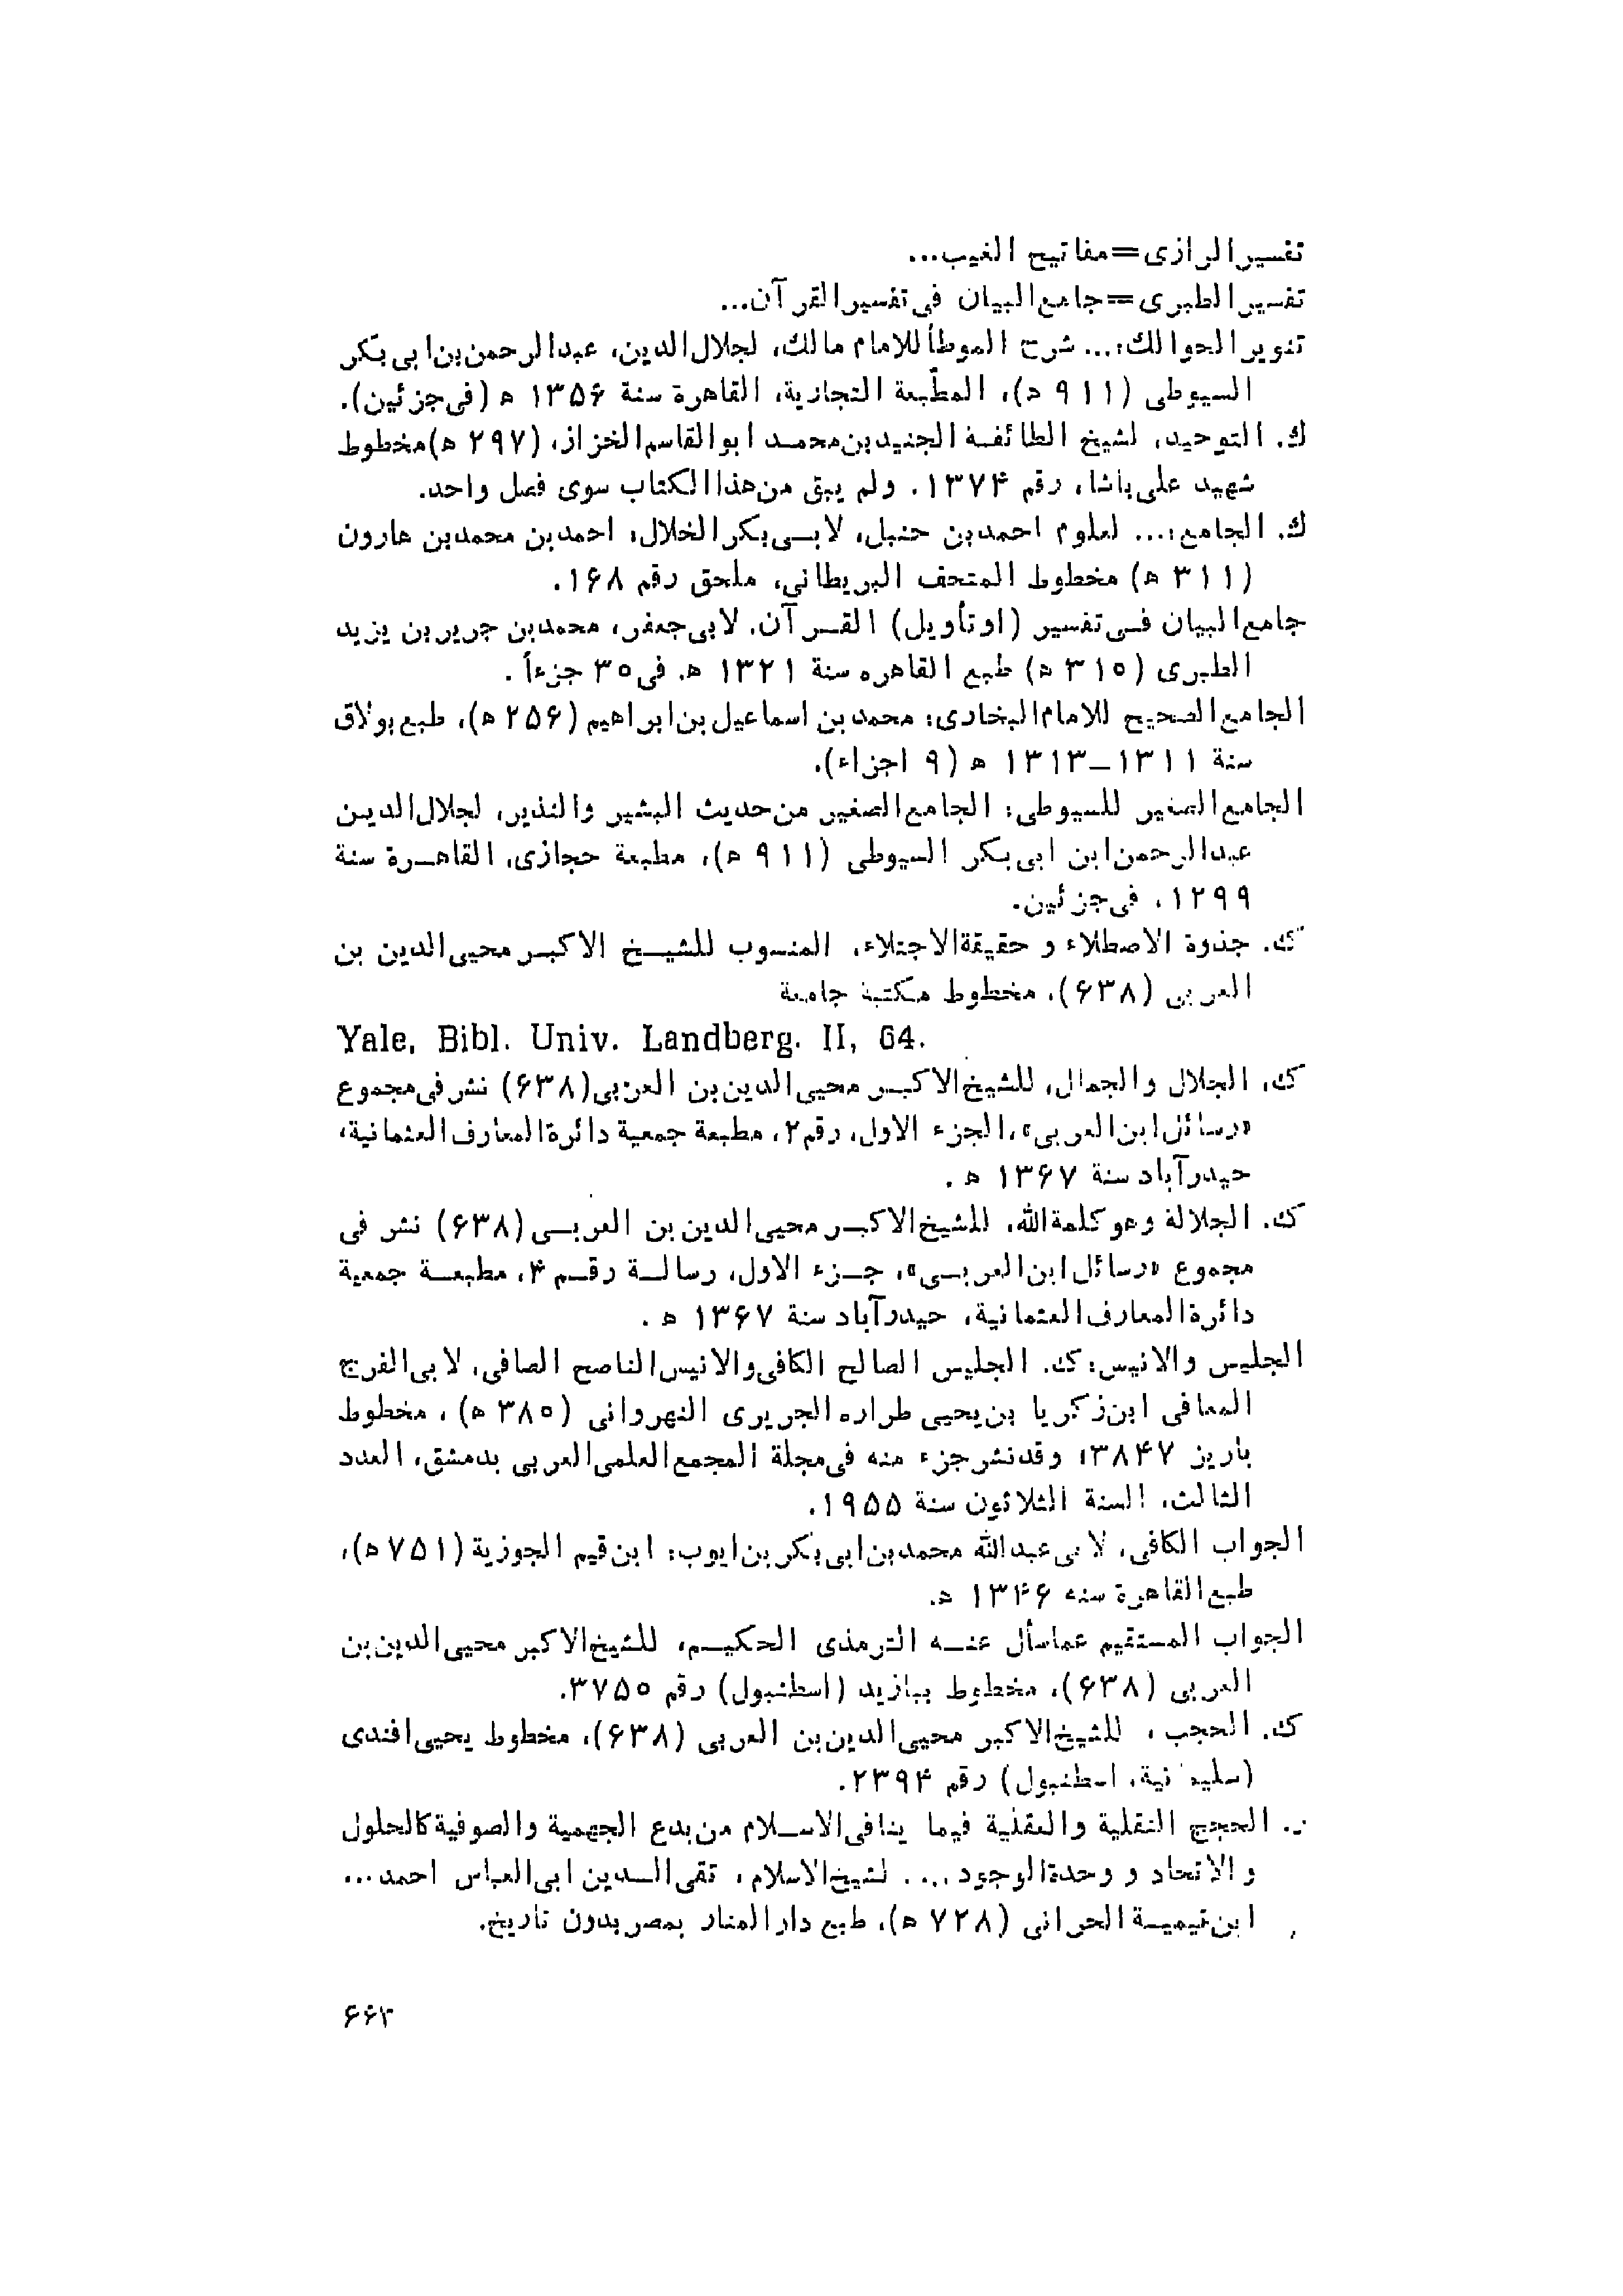 تفسیرالرازی=مفاتیح الغیب...
تفسیرالطبری=جامع‌البیان فی‌تفسیرالقرآن...
تنویرالحوالك:... شرح الموطأ للامام مالك، لجلال‌الدین، عبدالرحمن‌بن‌ابی‌بکر
السیوطی (۹۱۱ ه)، المطبعة التجاریة، القاهرة سنة ۱۳۵۶ ه (فی‌جزئین).
ك. التوحید، لشیخ الطائفـة الجنیدبن‌محمـد ابوالقاسم‌الخزاز، (۲۹۷ ه)مخطوط
شهید علی‌باشا، رقم ۱۳۷۴. ولم یبق من‌هذاالکتاب سوی فصل واحد.
ك. الجامع:... لعلوم احمدبن حنبل، لابـی‌بکرالخلال، احمدبن محمدبن هارون
(۳۱۱ ه) مخطوط المتحف البریطانی، ملحق رقم ۱۶۸.
جامع‌البیان فـی‌تفسیر (اوتأویل) القـرآن. لابی‌جعفر، محمدبن جریربن یزید
الطبری (۳۱۵ ه) طبع القاهره سنة ۱۳۲۱ ه. فی۳۵ جزءاً.
الجامع‌الصحیح للامام‌البخاری: محمدبن اسماعیل‌بن‌ابراهیم (۲۵۶ ه)، طبع‌بولاق
سنة ۱۳۱۱–۱۳۱۳ ه (۹ اجزاء).
الجامع‌الصغیر للسیوطی: الجامع‌الصغیر من‌حدیث البشیر والنذیر، لجلال‌الدیـن
عبدالرحمن‌ابن ابی‌بکر السیوطی (۹۱۱ ه)، مطبعة حجازی، القاهـرة سنة
۱۲۹۹، فی‌جزئین.
ك. جذوة الاصطلاء و حقیقةالاجتلاء، المنسوب للشیـخ الاکبـر محیی‌الدین بن
العربی (۶۳۸)، مخطوط مکتبة جامعة
Yale, Bibl. Univ. Landberg. II, 64.
ك. الجلال والجمال، للشیخ‌الاکبـر محیی‌الدین‌بن العربی(۶۳۸) نشرفی‌مجموع
«رسائل‌ابن‌العربی»،الجزء الاول، رقم۲، مطبعة جمعیة دائرةالمعارف‌العثمانیة،
حیدرآباد سنة ۱۳۶۷ ه.
ك. الجلالة وهوکلمةالله، للشیخ‌الاکبـر محیی‌الدین بن العربـی (۶۳۸) نشر فی
مجموع «رسائل‌ابن‌العربـی»، جـزء الاول، رسالـة رقـم ۴، مطبعـة جمعیة
دائرةالمعارف‌العثمانیة، حیدرآباد سنة ۱۳۶۷ ه.
الجلیس والانیس: ك. الجلیس الصالح الکافی‌والانیس‌الناصح الصافی، لابی‌الفرج
المعافی ابن‌زکریا بن‌یحیی طراره الجریری النهروانی (۳۸۵ ه)، مخطوط
باریز ۳۸۴۷، وقدنشرجزء منه فی‌مجلة المجمع‌العلمی‌العربی بدمشق، العدد
الثالث، السنة الثلاثون سنة ۱۹۵۵.
الجواب الکافی، لابی‌عبدالله محمدبن‌ابی‌بکربن‌ایوب: ابن‌قیم الجوزیة (۷۵۱ه)،
طبع‌القاهرة سنه ۱۳۴۶ ه.
الجواب المستقیم عماسأل عنـه الترمذی الحکیـم، للشیخ‌الاکبر محیی‌الدین‌بن
العربی (۶۳۸)، مخطوط بیازید (اسطنبول) رقم ۳۷۵۵.
ك. الحجب، للشیخ‌الاکبر محیی‌الدین‌بن العربی (۶۳۸)، مخطوط یحیی‌افندی
(سلیمانیة، اسطنبول) رقم ۲۳۹۴.
ر. الحجج النقلیة والعقلیة فیما ینافی‌الاسـلام من‌بدع الجهمیة والصوفیةکالحلول
والاتحاد و وحدةالوجود .... لشیخ‌الاسلام، تقی‌الـدین ابی‌العباس احمد...
ابن‌تیمیـة الحرانی (۷۲۸ ه)، طبع دارالمنار بمصربدون تاریخ.
۶۶۳